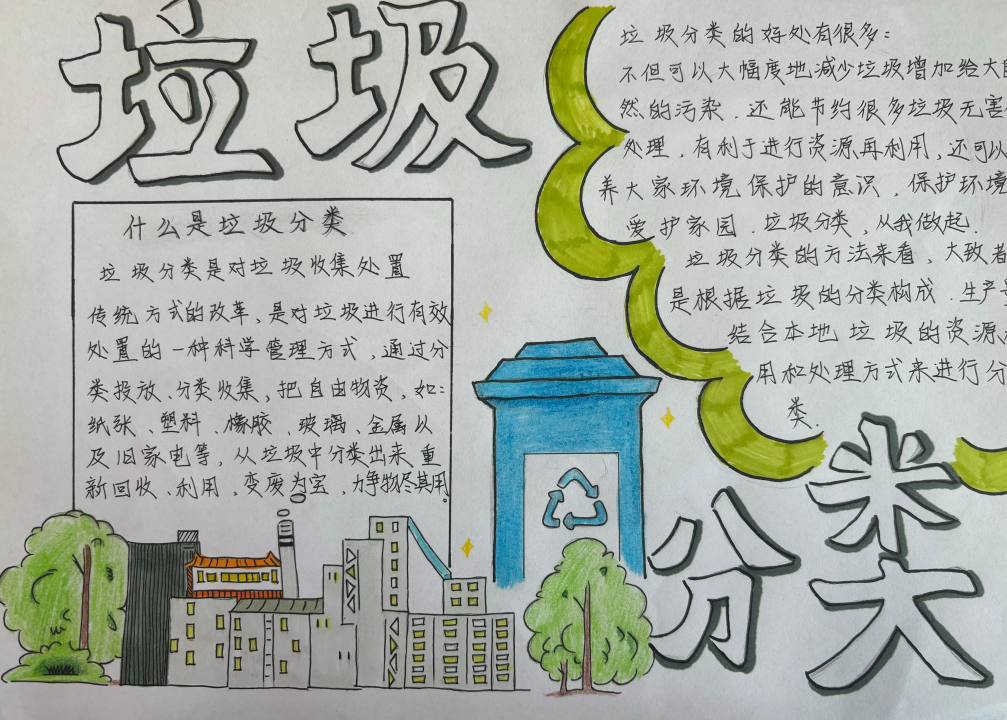 垃圾
什么是垃圾分类
垃圾分类是对垃圾收集处置
传统方式的改革、是对垃圾进行有效
处置的一种科学管理方式，通过分
类投放、分类收集，把自由物资，如：
纸张、塑料、橡胶、玻璃、金属以
及旧家电等，从垃圾中分类出来重
新回收、利用，变废为宝，力争物尽其用.
垃圾分类的好处有很多：
不但可以大幅度地减少垃圾增加给大
然的污染．还能节约很多垃圾无害
处理，有利于进行资源再利用，还可以
养大家环境保护的意识，保护环境
爱护家园．垃圾分类，从我做起．
垃圾分类的方法来看，大致者
是根据垃圾的分类构成．生产
结合本地垃圾的资源
用和处理方式来进行分
类.
分类